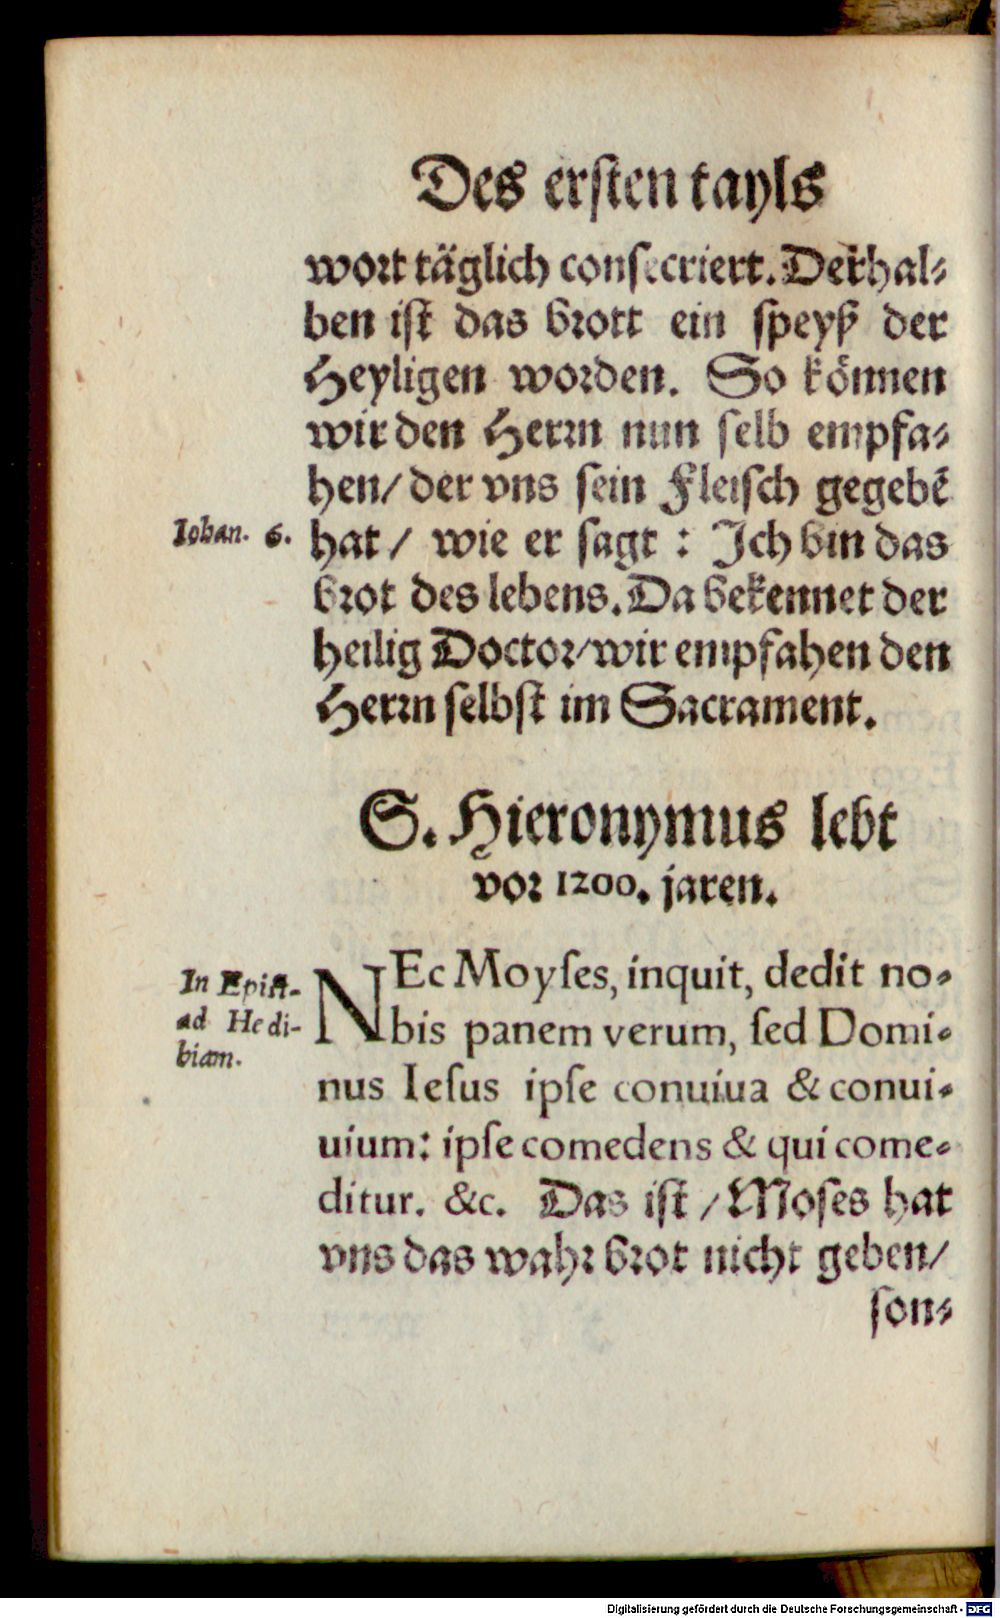 Des erſten tayls
wort täglich conſecriert. Derhal⸗
ben iſt das brott ein ſpeyß der
Heyligen worden. So können
wir den Herrn nun ſelb empfa⸗
hen/ der vns ſein Fleiſch gegebē
Iohan. 6. hat / wie er ſagt : Ich bin das
brot des lebens. Da bekennet der
heilig Doctor/ wir empfahen den
Herrn ſelbſt im Sacrament.
S. Hieronymus lebt
vor 1200. jaren.
In Epiſt.
ad Hedi-
biam.
NEc Moyſes, inquit, dedit no-
bis panem verum, ſed Domi-
nus Ieſus ipſe conuiua & conui-
uium: ipſe comedens & qui come-
ditur. &c. Das iſt / Moſes hat
vns das wahr brot nicht geben/
ſon⸗
Digitalisierung gefördert durch die Deutsche Forschungsgemeinschaft - DFG